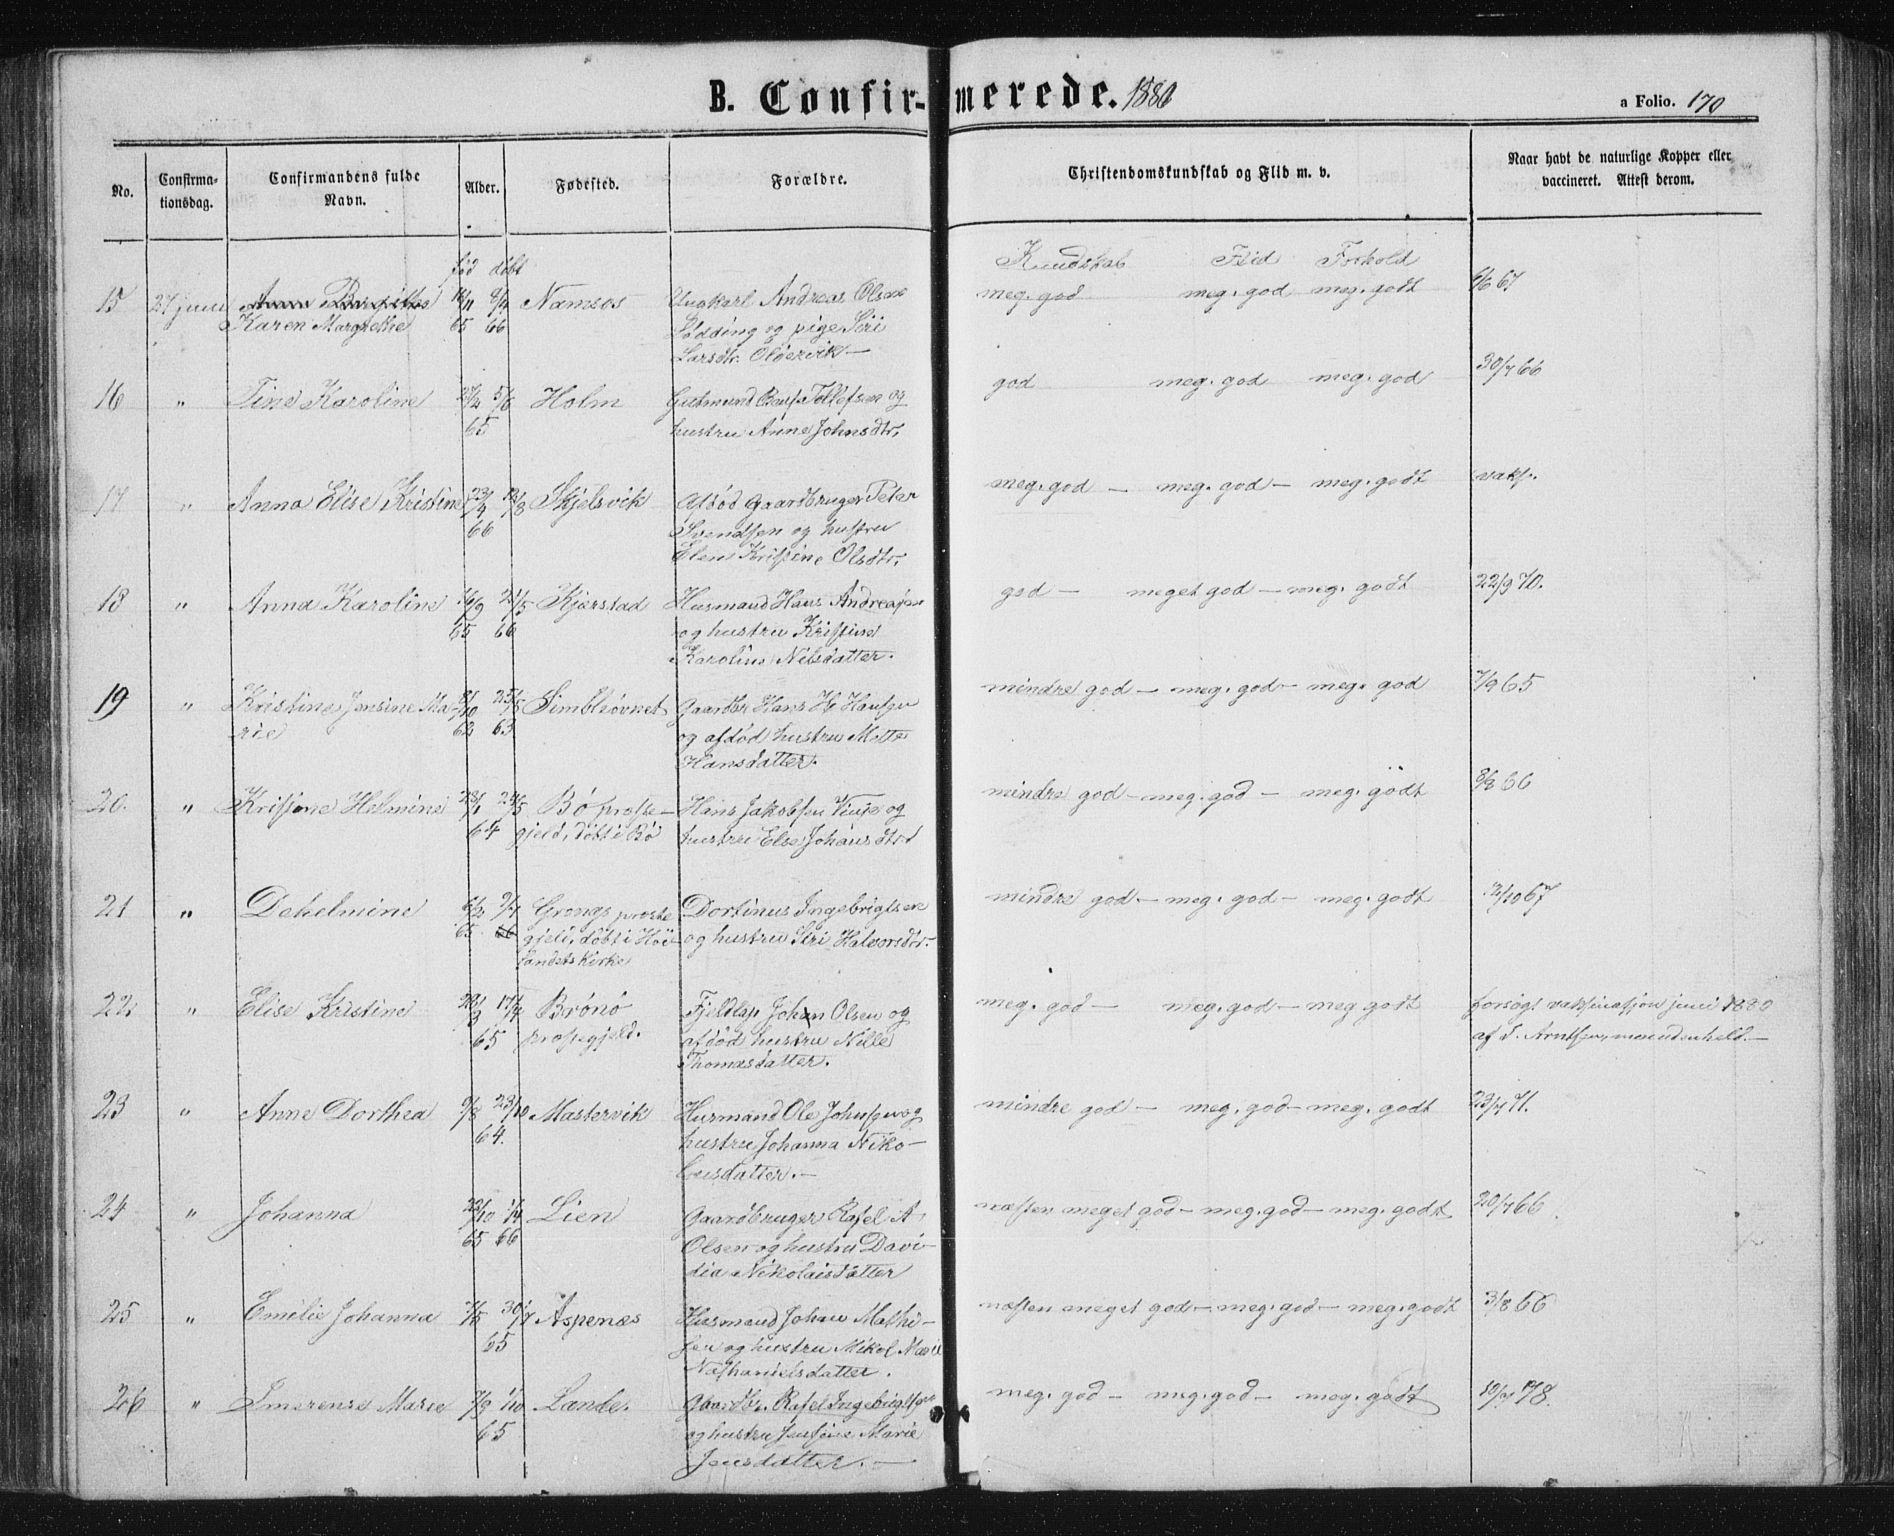 B. Confirmerede. 1880
a Folio. 170
No.
Confirmationsdag.
Confirmandens fulde Navn.
Alder.
Fødested.
Forældre.
Christendomskundskab og Flid m. v.
Naar havt de naturlige Kopper eller vaccineret. Attest derom.
født døbt
Kundskab Flid Forhold
15 27 juni Karen Margrethe 65 66 Namsos Ungkarl Andreas Olsen meg. god meg. god meg. godt 67
og pige Siri
Larsdtr.
16 " Tine Karoline 65 Holm Tollefsen og god meg. god meg. god 30/7 66
hustru Anne Johnsdtr.
17 " Anna Elise Kristine 23/4 66 Skjelsvik Afdød Gaardbruger Peter meg. god — meg. god — meg. godt vaks.
Svendsen og hustru
Elen Kristine Olsdtr.
18 " Anna Karoline 16/9 65 21/5 66 Kjærstad Husmand Hans Andreasen god — meget god — meg. godt 22/9 70.
og hustru Kristine
Karoline Nilsdatter.
19 " Kristine Jensine Ma- 62 25/5 63 Simlestøvnet Gaardbr Hans H Hansen mindre god — meg. god — meg. god 7/9 65
rie og afdød hustru Mette
Hansdatter.
20. " Kristine Helmine 28/1 24/5 64 Bø præste- Hans Jakobsen og mindre god — meg. god — meg. godt 8/8 66
gjeld, døbt i Bø hustru Else Johansdtr
21 " Dekelmine 65 66 Grongs præste Dortinus Ingebrigtsen mindre god — meg. god — meg. godt 12/10 67
gjeld, døbt i Høi- og hustru Siri Halvorsdtr.
landets kirke
22. " Elise Kristine 28/3 17/4 65 Brønø Fjeldlap Johan Olsen og meg. god — meg. god — meg godt forsøgt vaksinasjon juni 1880
præstegjeld. afdød hustru Nille af Arntsen, men uden held. —
Thomasdatter.
23 " Anne Dorthea 9/8 23/10 64. Mastervik Husmand Ole Johnsen og mindre god — meg. god — meg. godt 23/7 71.
hustru Johanna Niko-
laisdatter. —
24 " Johanna 22/10 65 1/4 66 Lien Gaardbruger Rafel A næsten meget god — meg. god — meg. godt 20/7 66
Olsen og hustru Davi-
dia Nikolaisdatter
25 " Emilie Johanna 7/5 30/7 65 Aspenæs Husmand Johan Mathi- næsten meget god — meg. god — meg. godt 3/8 66
sen og hustru Mikol Marie
Nathanielsdatter.
26 " Imerense Marie 7/9 1/10 65 Lande. Gaardbr. Rafel Ingebrigtsen meg. god — meg. god — meg. godt 10/7 78.
og hustru Jensine Marie
Jensdatter. —